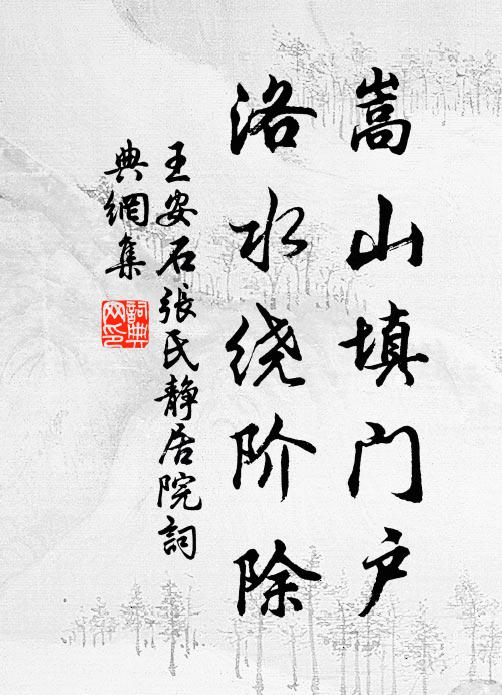 嵩山填门户
洛水绕阶除
王安石張氏靜居院詞
典網集
詞典
网印